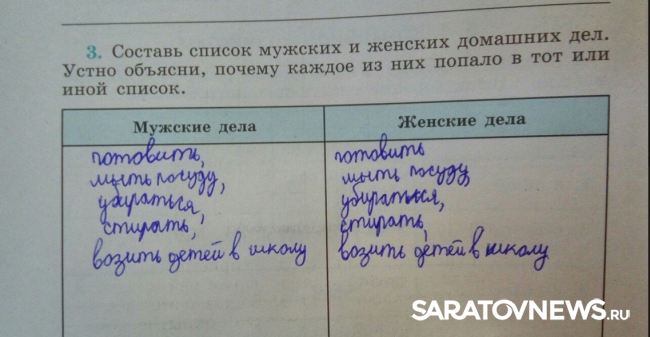 3. Составь список мужских и женских домашних дел.
Устно объясни, почему каждое из них попало в тот или
иной список.
Мужские дела
Женские дела
готовить,
мыть посуду,
убираться,
стирать,
возить детей в школу
готовить
мыть посуду,
убираться,
стирать,
возить детей в школу
SARATOVNEWS.RU